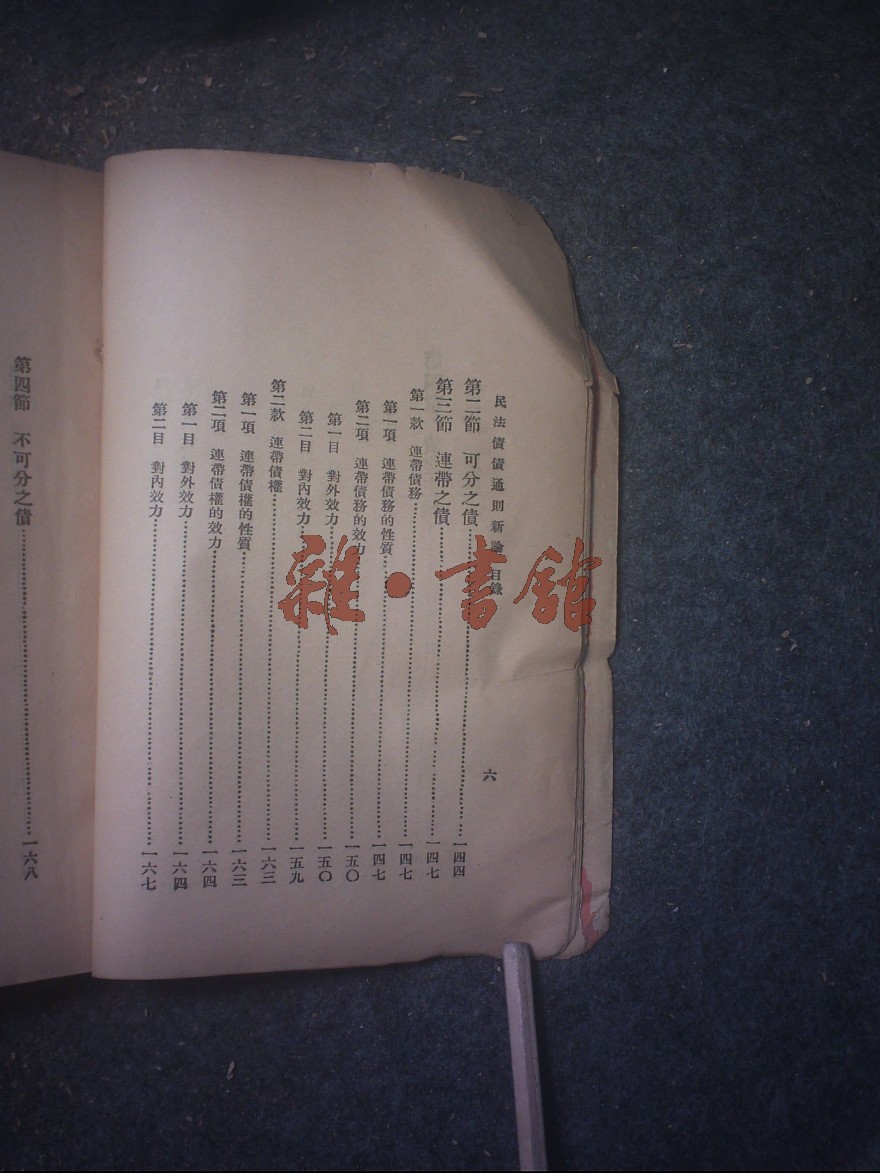 民法債債通則新論 目錄
六
第二節 可分之債……一四四
第三節 連帶之債……一四七
第一款 連帶債務……一四七
第一項 連帶債務的性質……一四七
第二項 連帶債務的效力……一五〇
第一目 對外效力……一五〇
第二目 對內效力……一五九
第二款 連帶債權……一六三
第一項 連帶債權的性質……一六三
第二項 連帶債權的效力……一六四
第一目 對外效力……一六四
第二目 對內效力……一六七
第四節 不可分之債……一六八
雜·書館